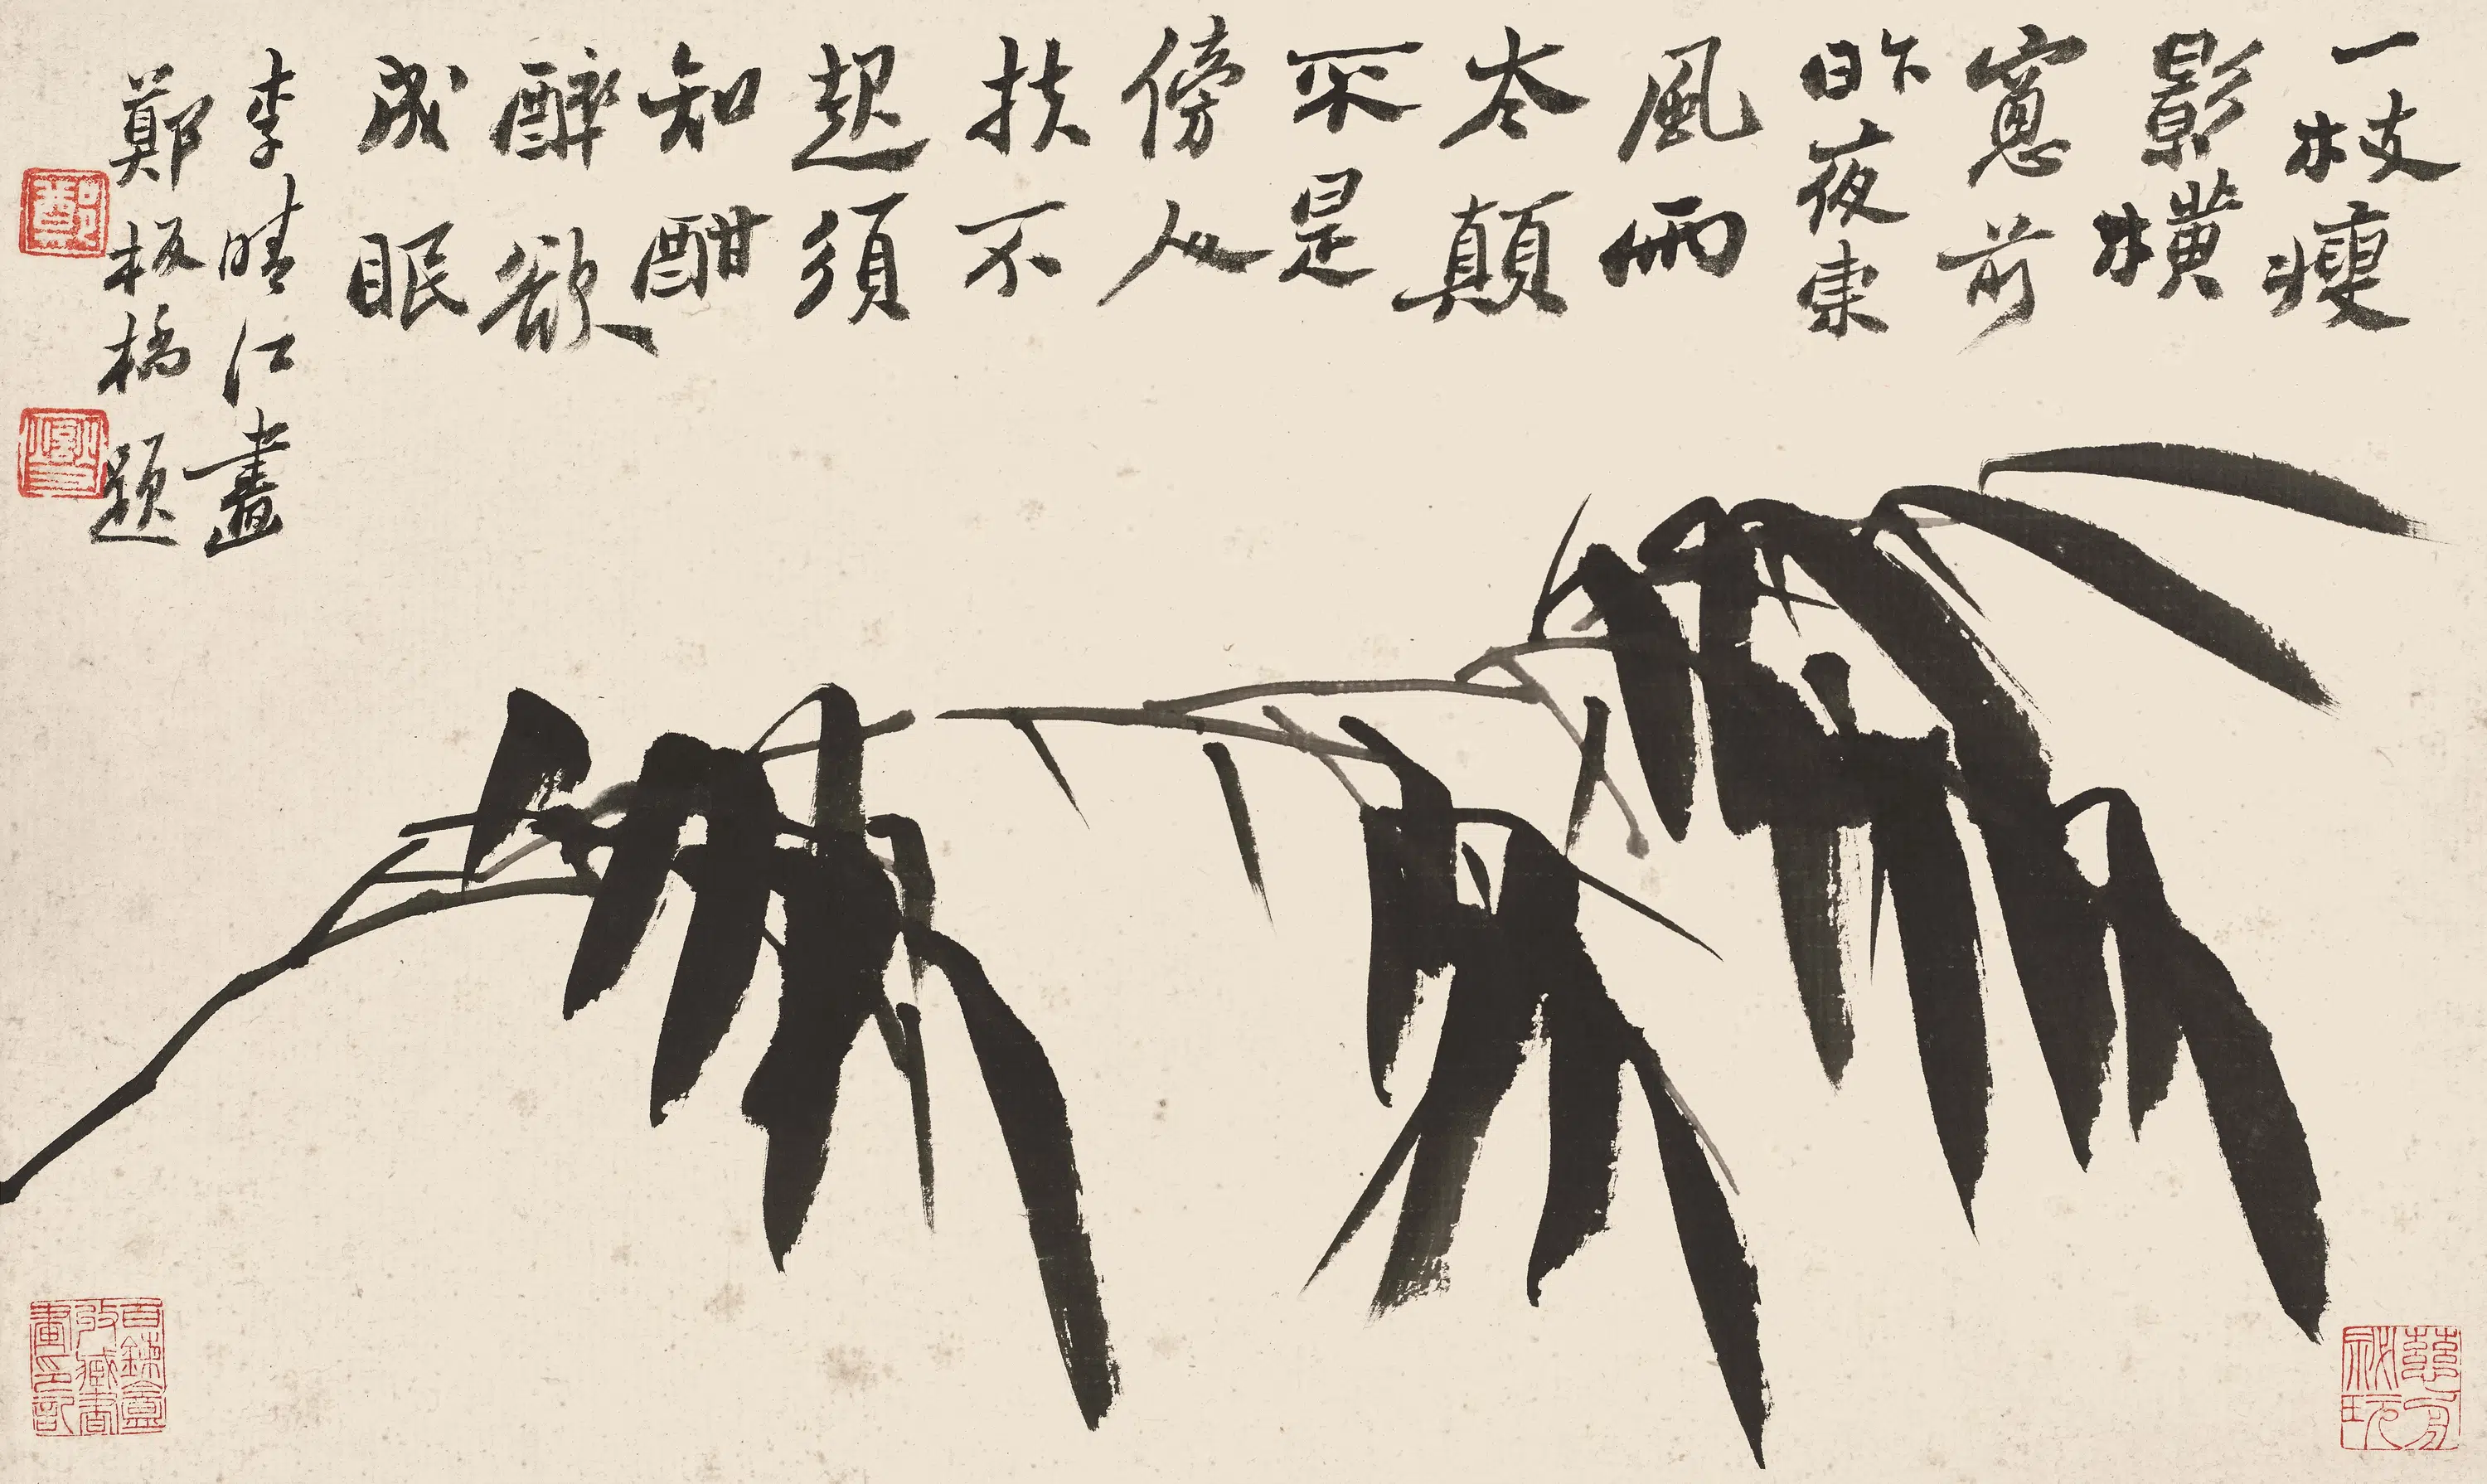 一枝瘦
影橫
窻前
昨夜東
風雨
太顛
不是
傍人
扶不
起須
知酣
醉欲
成眠
李晴江畫
鄭板橋題
鄭
燮印